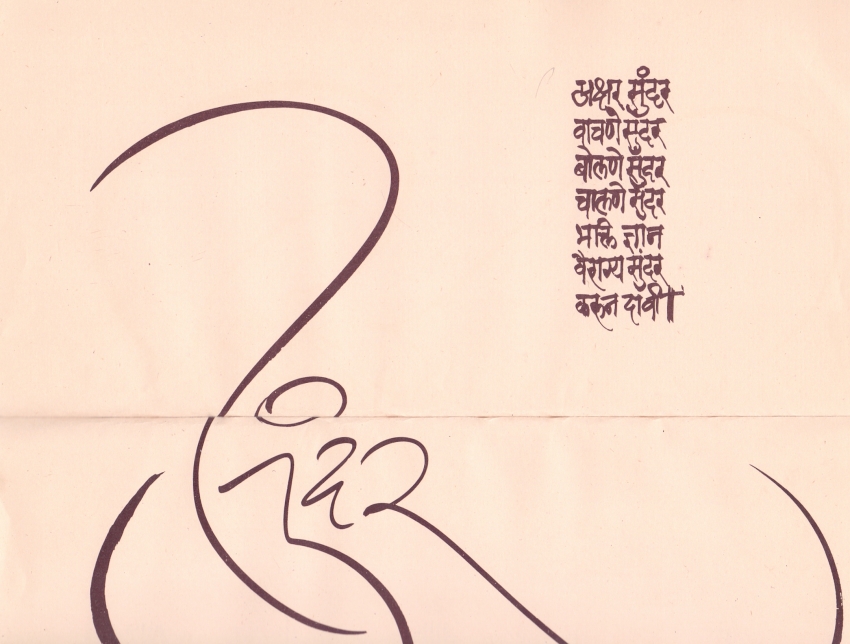 अक्षर सुंदर
वाचणे सुंदर
बोलणे सुंदर
चालणे सुंदर
भक्ति ज्ञान
वैराग्य सुंदर
करून दावी।
सुंदर